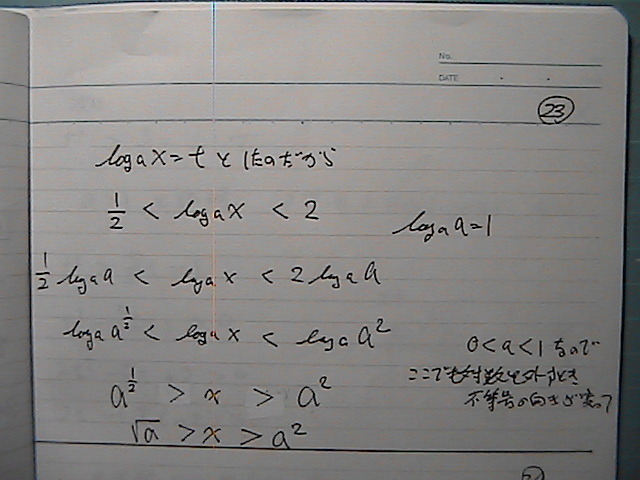 No.
DATE
23
log a x = t としたのだから
1/2 < log a x < 2
log a a = 1
1/2 log a a < log a x < 2 log a a
log a a^{1/2} < log a x < log a a^2
0 < a < 1 なので
ここでも対数を外すとき
a^{1/2} > x > a^2
不等号の向きが変って
√a > x > a^2